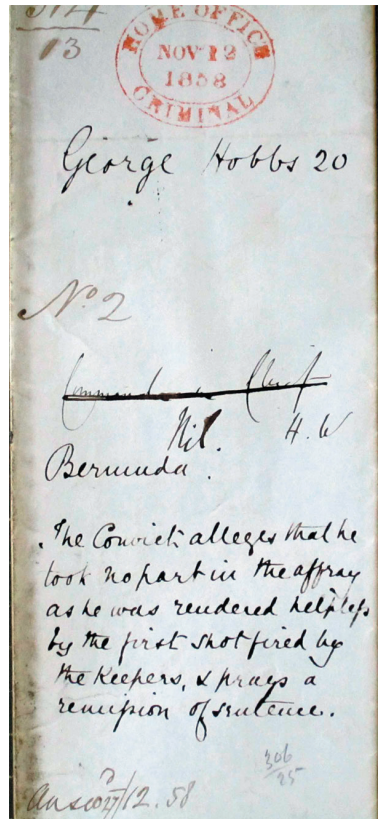 13
HOME OFFICE
NOV 12
1858
CRIMINAL
George Hobbs 20
No. 2
Commander in Chief
Nil. H.W
Bermuda.
The Convict alleges that he
took no part in the affray
as he was rendered helpless
by the first shot fired by
the Keepers, & prays a
remission of sentence.
306
25
12.58